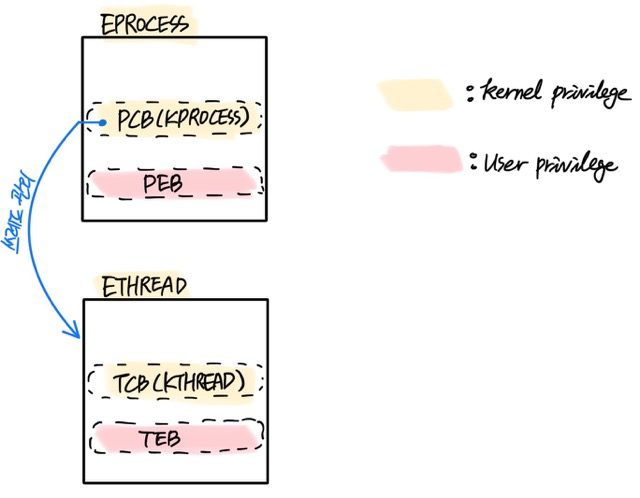 EPROCESS
PCB(KPROCESS)
PEB
쓰레드 관리
ETHREAD
TCB(KTHREAD)
TEB
: kernel privilege
: User privilege